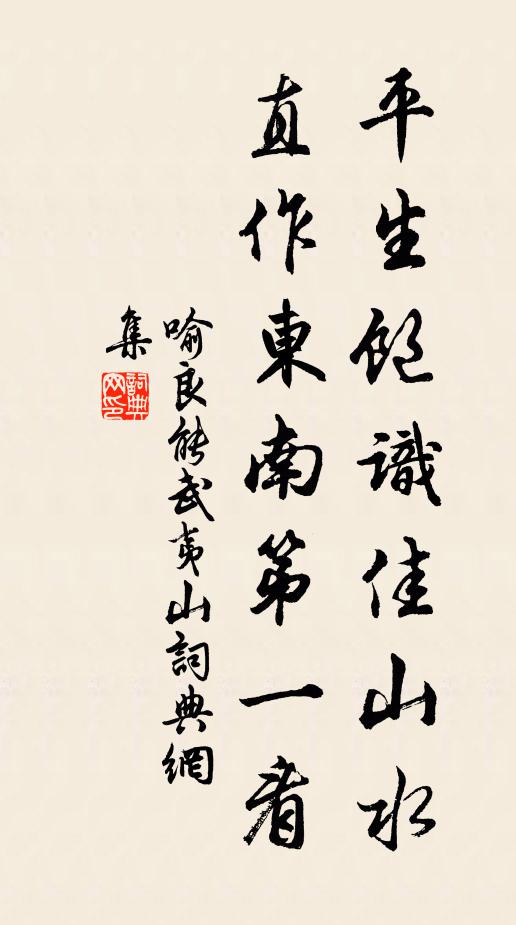 平生飽識佳山水
直作東南第一看
喻良能武夷山詞典網
集
詞典網印